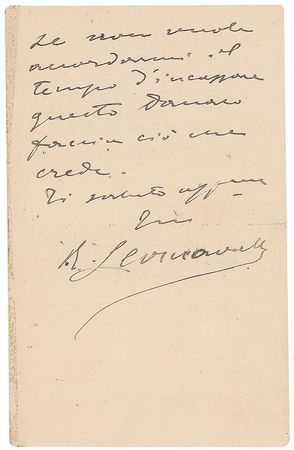 se non vuole
accordarmi il
tempo d'incassare
questo danaro
faccia ciò che
crede.
Ti saluto
Tuo
R. Leoncavallo